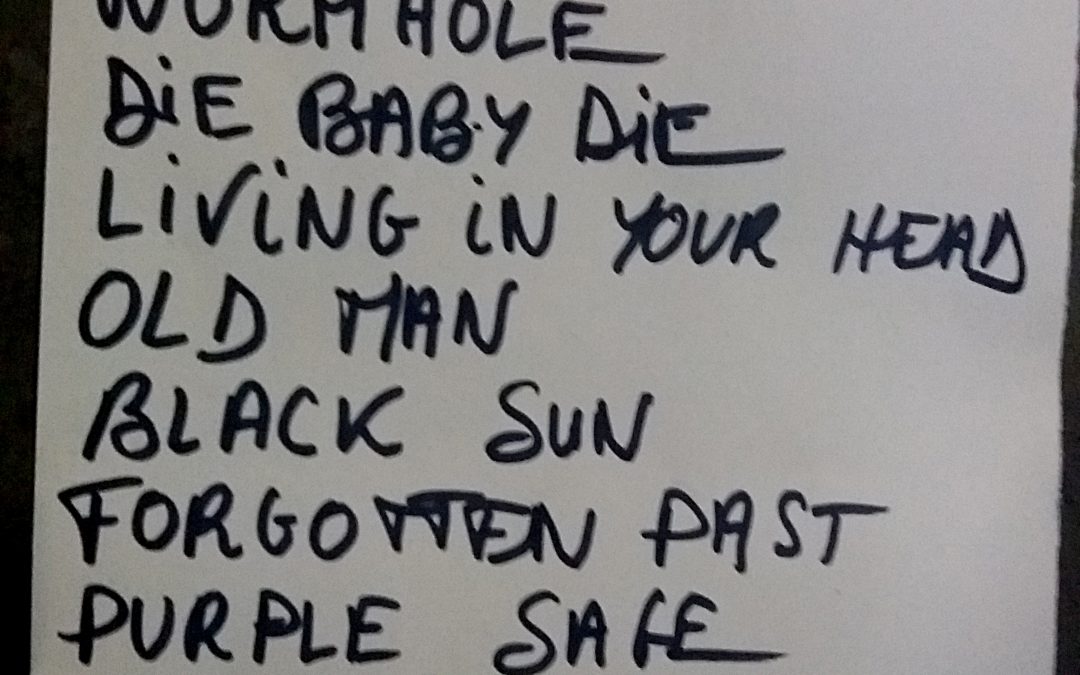 WORMHOLE
DiE BABY DiE
LiViNG iN YOUR HEAD
OLD MAN
BLACK SUN
FORGOTTEN PAST
PURPLE SAGE